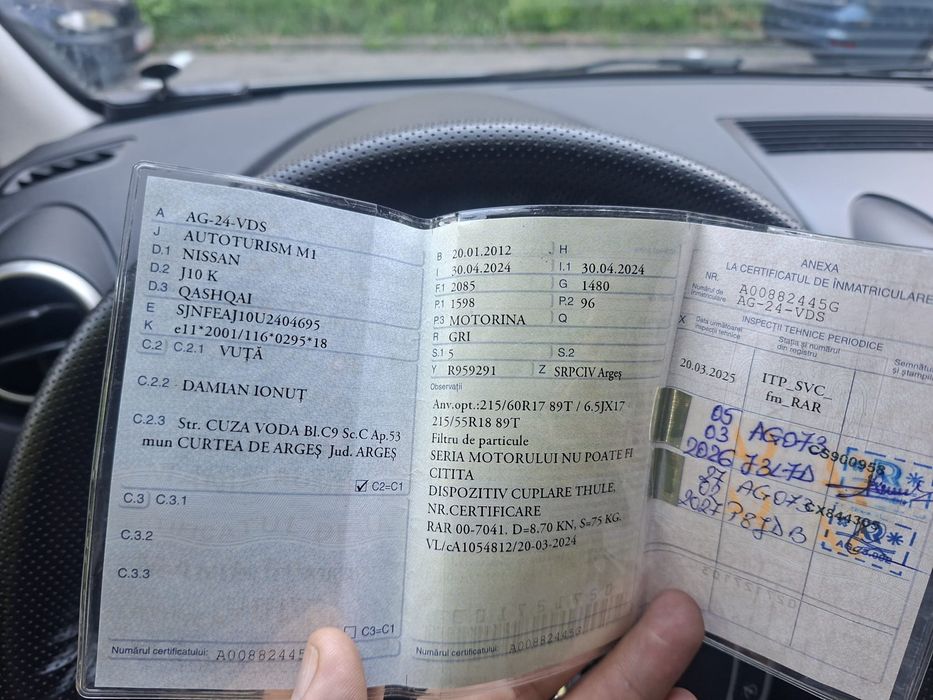 A AG-24-VDS
J AUTOTURISM M1
D.1 NISSAN
D.2 J10 K
D.3 QASHQAI
E SJNFEAJ10U2404695
K e11*2001/116*0295*18
C.2 C.2.1 VUȚĂ
C.2.2 DAMIAN IONUȚ
C.2.3 Str. CUZA VODA Bl.C9 Sc.C Ap.53
mun CURTEA DE ARGEȘ Jud. ARGEȘ
C2=C1
C.3 C.3.1
C.3.2
C.3.3
C3=C1
Numărul certificatului: A00882445
B 20.01.2012 H
I 30.04.2024 I.1 30.04.2024
F.1 2085 G 1480
P.1 1598 P.2 96
P.3 MOTORINA Q
R GRI
S.1 5 S.2
Y R959291 Z SRPCIV Argeș
Observații
Anv.opt.:215/60R17 89T / 6.5JX17
215/55R18 89T
Filtru de particule
SERIA MOTORULUI NU POATE FI
CITITA
DISPOZITIV CUPLARE THULE,
NR.CERTIFICARE
RAR 00-7041. D=8.70 KN, S=75 KG.
VL/cA1054812/20-03-2024
Numărul certificatului: A00882445G
ANEXA
LA CERTIFICATUL DE ÎNMATRICULARE
NR. A00882445G
Numărul de înmatriculare AG-24-VDS
INSPECȚII TEHNICE PERIODICE
X Data următoarei inspecții tehnice
Stația și numărul din registru
Semnătu
și ștampila
20.03.2025 ITP_SVC_
fm_RAR
05
03 AG073 CS900958
2026
27 AG073 CX844305
2027